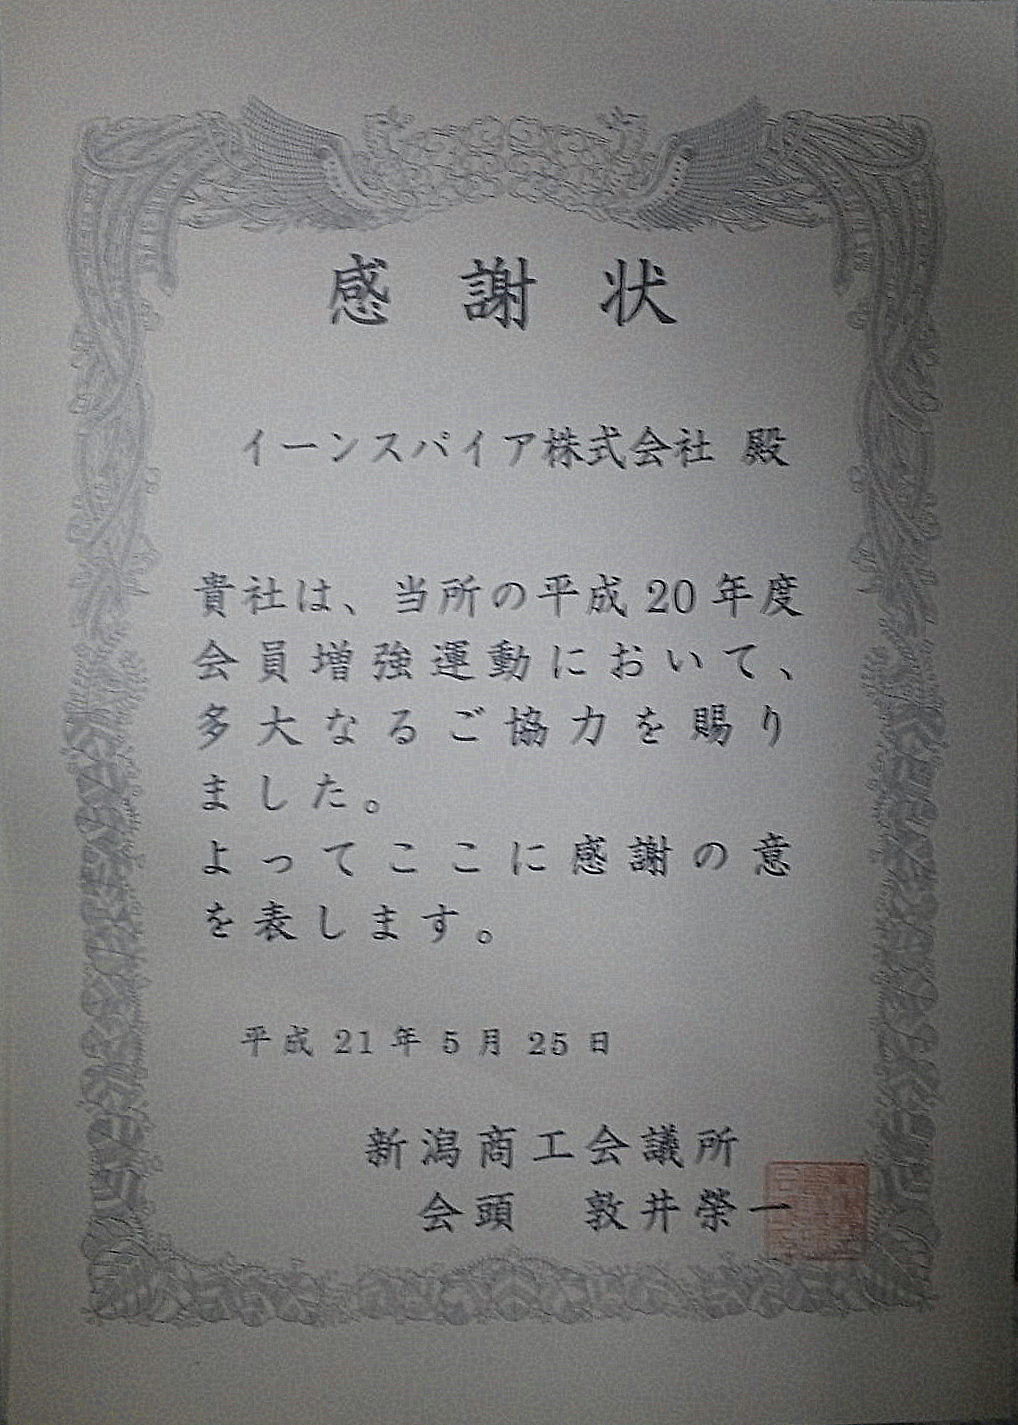 感謝状
イーンスパイア株式会社 殿
貴社は、当所の平成20年度
会員増強運動において、
多大なるご協力を賜り
ました。
よってここに感謝の意
を表します。
平成21年5月25日
新潟商工会議所
会頭 敦井榮一